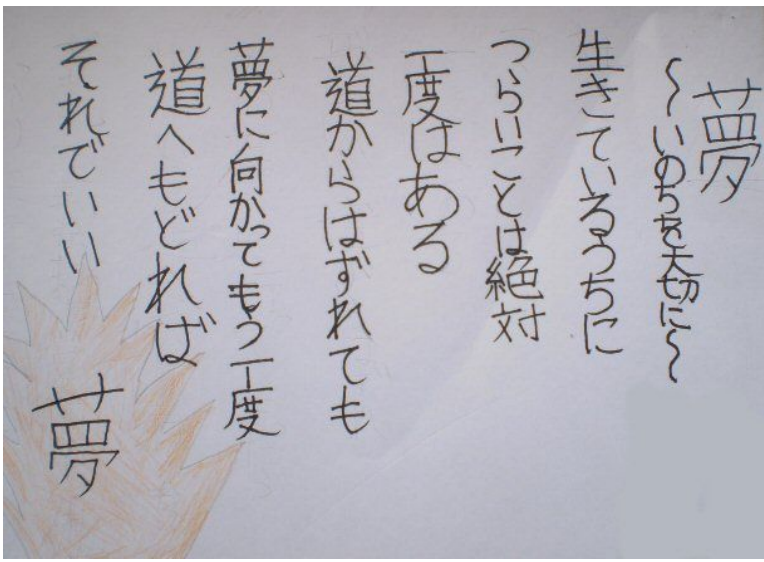 夢
～いのちを大切に～
生きているうちに
つらいことは絶対
一度はある
道からはずれても
夢に向かってもう一度
道へもどれば
それでいい
夢